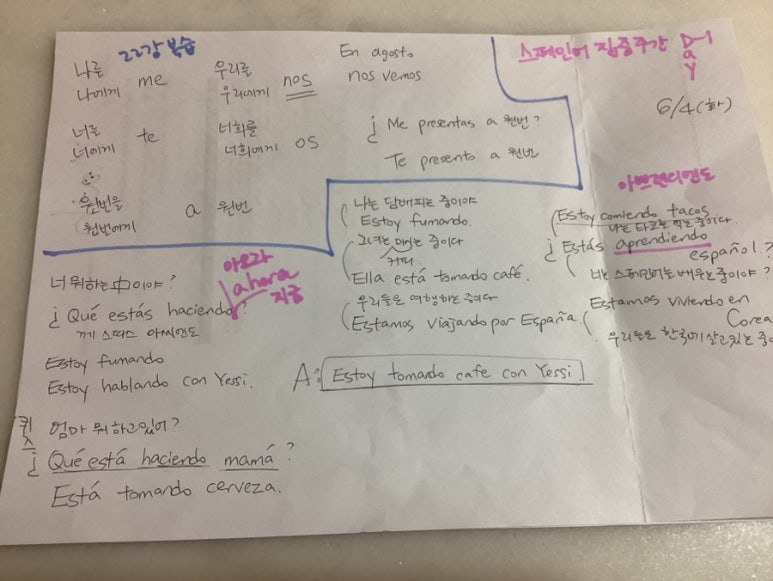 22강 복습
나를
나에게 me
우리를
우리에게 nos
너를
너에게 te
너희를
너희에게 os
원빈을
원빈에게 a 원빈
En agosto
nos vemos
¿ Me presentas a 원빈?
Te presento a 원빈
스페인어 집중주간 D-1
a
y
6/4(화)
너 뭐하는 中이야?
아오라
ahora
지금
¿ Qué estás haciendo?
께 스따스 아씨엔도
Estoy fumando
Estoy hablando con Yessi.
퀴즈 엄마 뭐 하고 있어?
¿ Qué está haciendo mamá?
Está tomando cerveza.
나는 담배피는 중이야
Estoy fumando.
그녀는 마시는 중이다
커피
Ella está tomando café.
우리들은 여행하는 중이다
Estamos viajando por España.
A: Estoy tomando cafe con Yessi
아쁘렌디엔도
Estoy comiendo tacos
나는 타코를 먹는 중이다.
¿ Estás aprendiendo
español?
너는 스페인어를 배우는 중이야?
Estamos viviendo en
Corea
우리들은 한국에 살고 있는 중